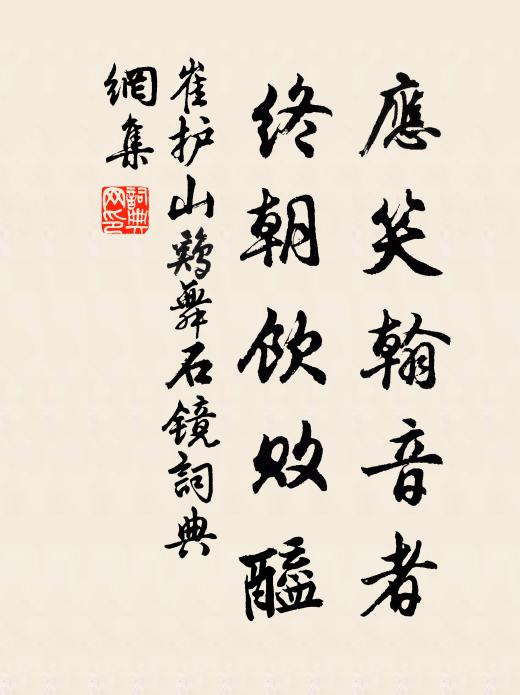 應笑翰音者
終朝飲敗醯
崔护山鷄舞石镜詞典
網集
詞典網印